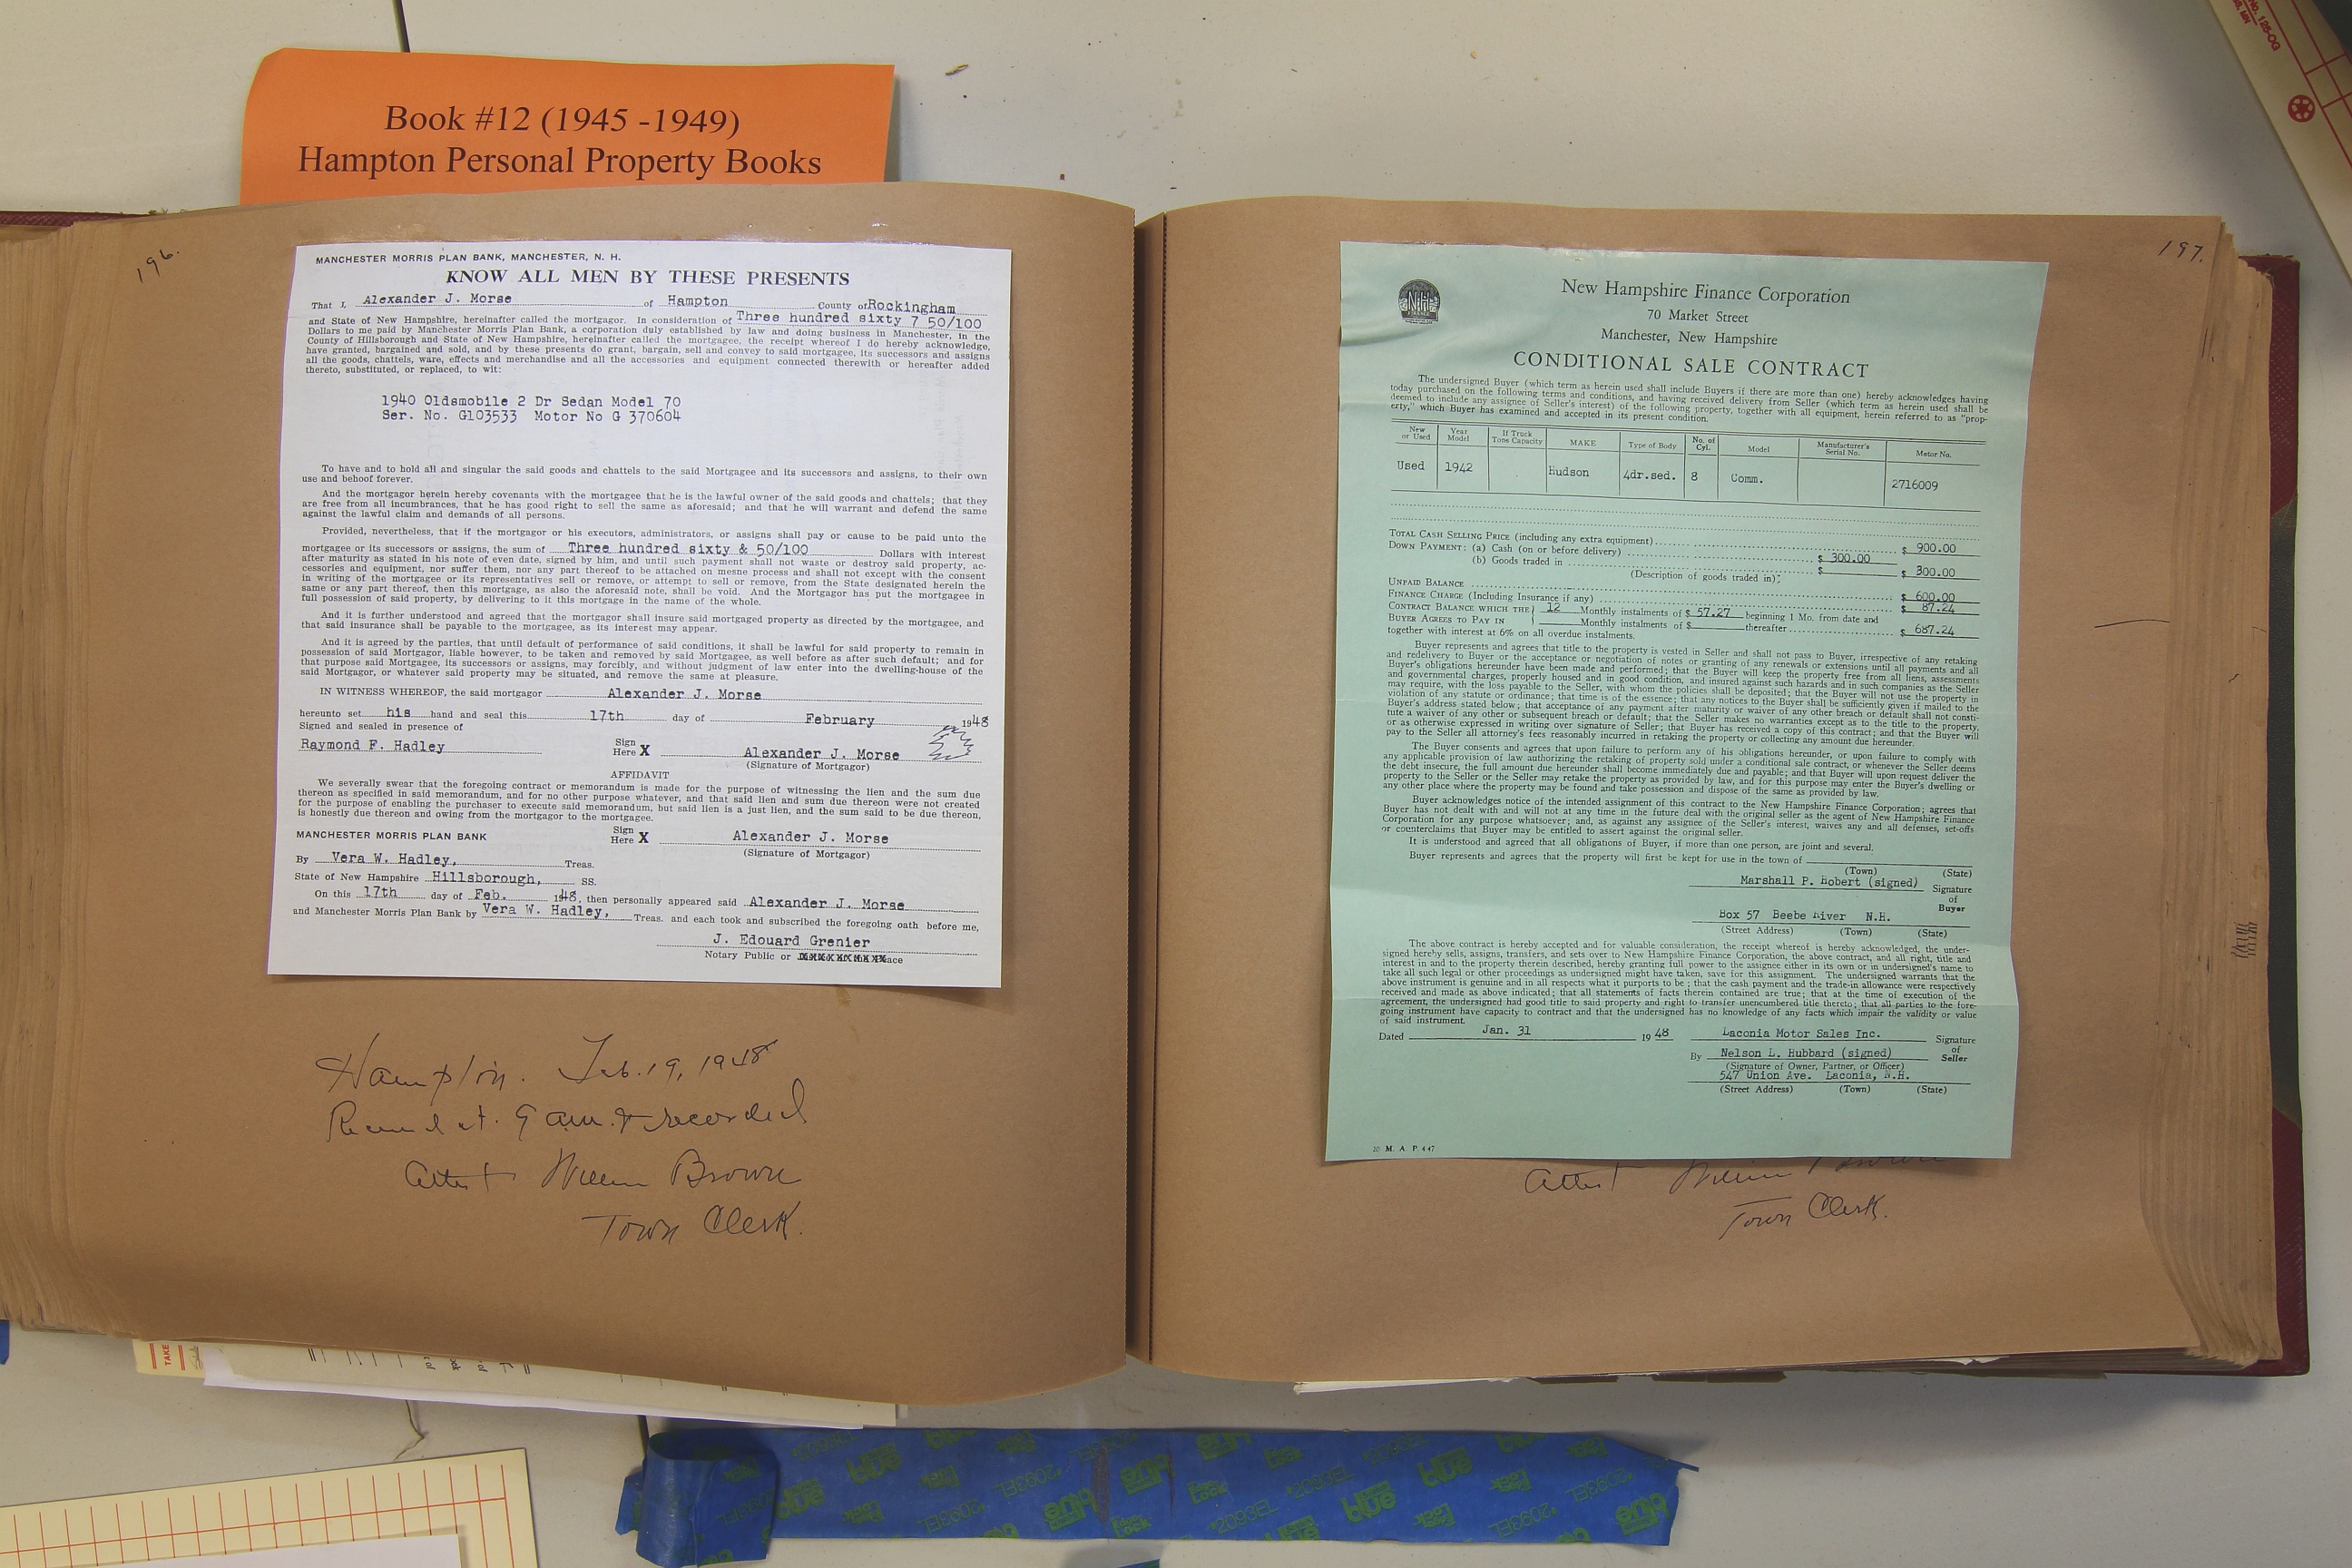 Book #12 (1945 -1949)
Hampton Personal Property Books
196.
MANCHESTER MORRIS PLAN BANK, MANCHESTER, N. H.
KNOW ALL MEN BY THESE PRESENTS
That I, Alexander J. Morse of Hampton County of Rockingham
and State of New Hampshire, hereinafter called the mortgagor. In consideration of Three hundred sixty 7 50/100
Dollars to me paid by Manchester Morris Plan Bank, a corporation duly established by law and doing business in Manchester, in the
County of Hillsborough and State of New Hampshire, hereinafter called the mortgagee, the receipt whereof I do hereby acknowledge,
have granted, bargained and sold, and by these presents do grant, bargain, sell and convey to said mortgagee, its successors and assigns
all the goods, chattels, ware, effects and merchandise and all the accessories and equipment connected therewith or hereafter added
thereto, substituted, or replaced, to wit:
1940 Oldsmobile 2 Dr Sedan Model 70
Ser. No. G103533 Motor No G 370604
To have and to hold all and singular the said goods and chattels to the said Mortgagee and its successors and assigns, to their own
use and behoof forever.
And the mortgagor herein hereby covenants with the mortgagee that he is the lawful owner of the said goods and chattels; that they
are free from all incumbrances, that he has good right to sell the same as aforesaid; and that he will warrant and defend the same
against the lawful claim and demands of all persons.
Provided, nevertheless, that if the mortgagor or his executors, administrators, or assigns shall pay or cause to be paid unto the
mortgagee or its successors or assigns, the sum of Three hundred sixty & 50/100 Dollars with interest
after maturity as stated in his note of even date, signed by him, and until such payment shall not waste or destroy said property, ac-
cessories and equipment, nor suffer them, nor any part thereof to be attached on mesne process and shall not except with the consent
in writing of the mortgagee or its representatives sell or remove, or attempt to sell or remove, from the State designated herein the
same or any part thereof, then this mortgage, as also the aforesaid note, shall be void. And the Mortgagor has put the mortgagee in
full possession of said property, by delivering to it this mortgage in the name of the whole.
And it is further understood and agreed that the mortgagor shall insure said mortgaged property as directed by the mortgagee, and
that said insurance shall be payable to the mortgagee, as its interest may appear.
And it is agreed by the parties, that until default of performance of said conditions, it shall be lawful for said property to remain in
possession of said Mortgagor, liable however, to be taken and removed by said Mortgagee, as well before as after such default; and for
that purpose said Mortgagee, its successors or assigns, may forcibly, and without judgment of law enter into the dwelling-house of the
said Mortgagor, or whatever said property may be situated, and remove the same at pleasure.
IN WITNESS WHEREOF, the said mortgagor Alexander J. Morse
hereunto set his hand and seal this 17th day of February 1948
Signed and sealed in presence of
Raymond F. Hadley Sign Here X Alexander J. Morse
(Signature of Mortgagor)
AFFIDAVIT
We severally swear that the foregoing contract or memorandum is made for the purpose of witnessing the lien and the sum due
thereon as specified in said memorandum, and for no other purpose whatever, and that said lien and sum due thereon were not created
for the purpose of enabling the purchaser to execute said memorandum, but said lien is a just lien, and the sum said to be due thereon,
is honestly due thereon and owing from the mortgagor to the mortgagee.
MANCHESTER MORRIS PLAN BANK Sign Here X Alexander J. Morse
(Signature of Mortgagor)
By Vera W. Hadley, Treas.
State of New Hampshire Hillsborough, SS.
On this 17th day of Feb. 1948, then personally appeared said Alexander J. Morse
and Manchester Morris Plan Bank by Vera W. Hadley, Treas. and each took and subscribed the foregoing oath before me,
J. Edouard Grenier
Notary Public or
Hampton. Feb. 19, 1948
Received at. 9 am. & recorded
Attest William Brown
Town Clerk.
197.
NH
New Hampshire Finance Corporation
70 Market Street
Manchester, New Hampshire
CONDITIONAL SALE CONTRACT
The undersigned Buyer (which term as herein used shall include Buyers if there are more than one) hereby acknowledges having
today purchased on the following terms and conditions, and having received delivery from Seller (which term as herein used shall be
deemed to include any assignee of Seller's interest) of the following property, together with all equipment, herein referred to as "prop-
erty," which Buyer has examined and accepted in its present condition.
New or Used Year Model If Truck Tons Capacity MAKE Type of Body No. of Cyl. Model Manufacturer's Serial No. Motor No.
Used 1942 Hudson 4dr.sed. 8 Comm. 2716009
TOTAL CASH SELLING PRICE (including any extra equipment) $ 900.00
DOWN PAYMENT: (a) Cash (on or before delivery) $ 300.00
(b) Goods traded in $ $ 300.00
(Description of goods traded in):
UNPAID BALANCE $ 600.00
FINANCE CHARGE (Including Insurance if any) $ 87.24
CONTRACT BALANCE WHICH THE 12 Monthly instalments of $ 57.27 beginning 1 Mo. from date and
BUYER AGREES TO PAY IN Monthly instalments of $ thereafter $ 687.24
together with interest at 6% on all overdue instalments.
Buyer represents and agrees that title to the property is vested in Seller and shall not pass to Buyer, irrespective of any retaking
and redelivery to Buyer or the acceptance or negotiation of notes or granting of any renewals or extensions until all payments and all
Buyer's obligations hereunder have been made and performed; that the Buyer will keep the property free from all liens, assessments
and governmental charges, properly housed and in good condition, and insured against such hazards and in such companies as the Seller
may require, with the loss payable to the Seller, with whom the policies shall be deposited; that the Buyer will not use the property in
violation of any statute or ordinance; that time is of the essence; that any notices to the Buyer shall be sufficiently given if mailed to the
Buyer's address stated below; that acceptance of any payment after maturity or waiver of any other breach or default shall not consti-
tute a waiver of any other or subsequent breach or default; that the Seller makes no warranties except as to the title to the property,
or as otherwise expressed in writing over signature of Seller; that Buyer has received a copy of this contract; and that the Buyer will
pay to the Seller all attorney's fees reasonably incurred in retaking the property or collecting any amount due hereunder.
The Buyer consents and agrees that upon failure to perform any of his obligations hereunder, or upon failure to comply with
any applicable provision of law authorizing the retaking of property sold under a conditional sale contract, or whenever the Seller deems
the debt insecure, the full amount due hereunder shall become immediately due and payable; and that Buyer will upon request deliver the
property to the Seller or the Seller may retake the property as provided by law, and for this purpose may enter the Buyer's dwelling or
any other place where the property may be found and take possession and dispose of the same as provided by law.
Buyer acknowledges notice of the intended assignment of this contract to the New Hampshire Finance Corporation; agrees that
Buyer has not dealt with and will not at any time in the future deal with the original seller as the agent of New Hampshire Finance
Corporation for any purpose whatsoever; and, as against any assignee of the Seller's interest, waives any and all defenses, set-offs
or counterclaims that Buyer may be entitled to assert against the original seller.
It is understood and agreed that all obligations of Buyer, if more than one person, are joint and several.
Buyer represents and agrees that the property will first be kept for use in the town of
(Town) (State)
Marshall P. Hobert (signed) Signature of Buyer
Box 57 Beebe River N.H.
(Street Address) (Town) (State)
The above contract is hereby accepted and for valuable consideration, the receipt whereof is hereby acknowledged, the under-
signed hereby sells, assigns, transfers, and sets over to New Hampshire Finance Corporation, the above contract, and all right, title and
interest in and to the property therein described, hereby granting full power to the assignee either in its own or in undersigned's name to
take all such legal or other proceedings as undersigned might have taken, save for this assignment. The undersigned warrants that the
above instrument is genuine and in all respects what it purports to be; that the cash payment and the trade-in allowance were respectively
received and made as above indicated; that all statements of facts therein contained are true; that at the time of execution of the
agreement, the undersigned had good title to said property and right to transfer unencumbered title thereto; that all parties to the fore-
going instrument have capacity to contract and that the undersigned has no knowledge of any facts which impair the validity or value
of said instrument.
Dated Jan. 31 1948 Laconia Motor Sales Inc. Signature of Seller
By Nelson L. Hubbard (signed)
(Signature of Owner, Partner, or Officer)
547 Union Ave. Laconia, N.H.
(Street Address) (Town) (State)
20 M. A. P. 447
Attest William
Town Clerk.